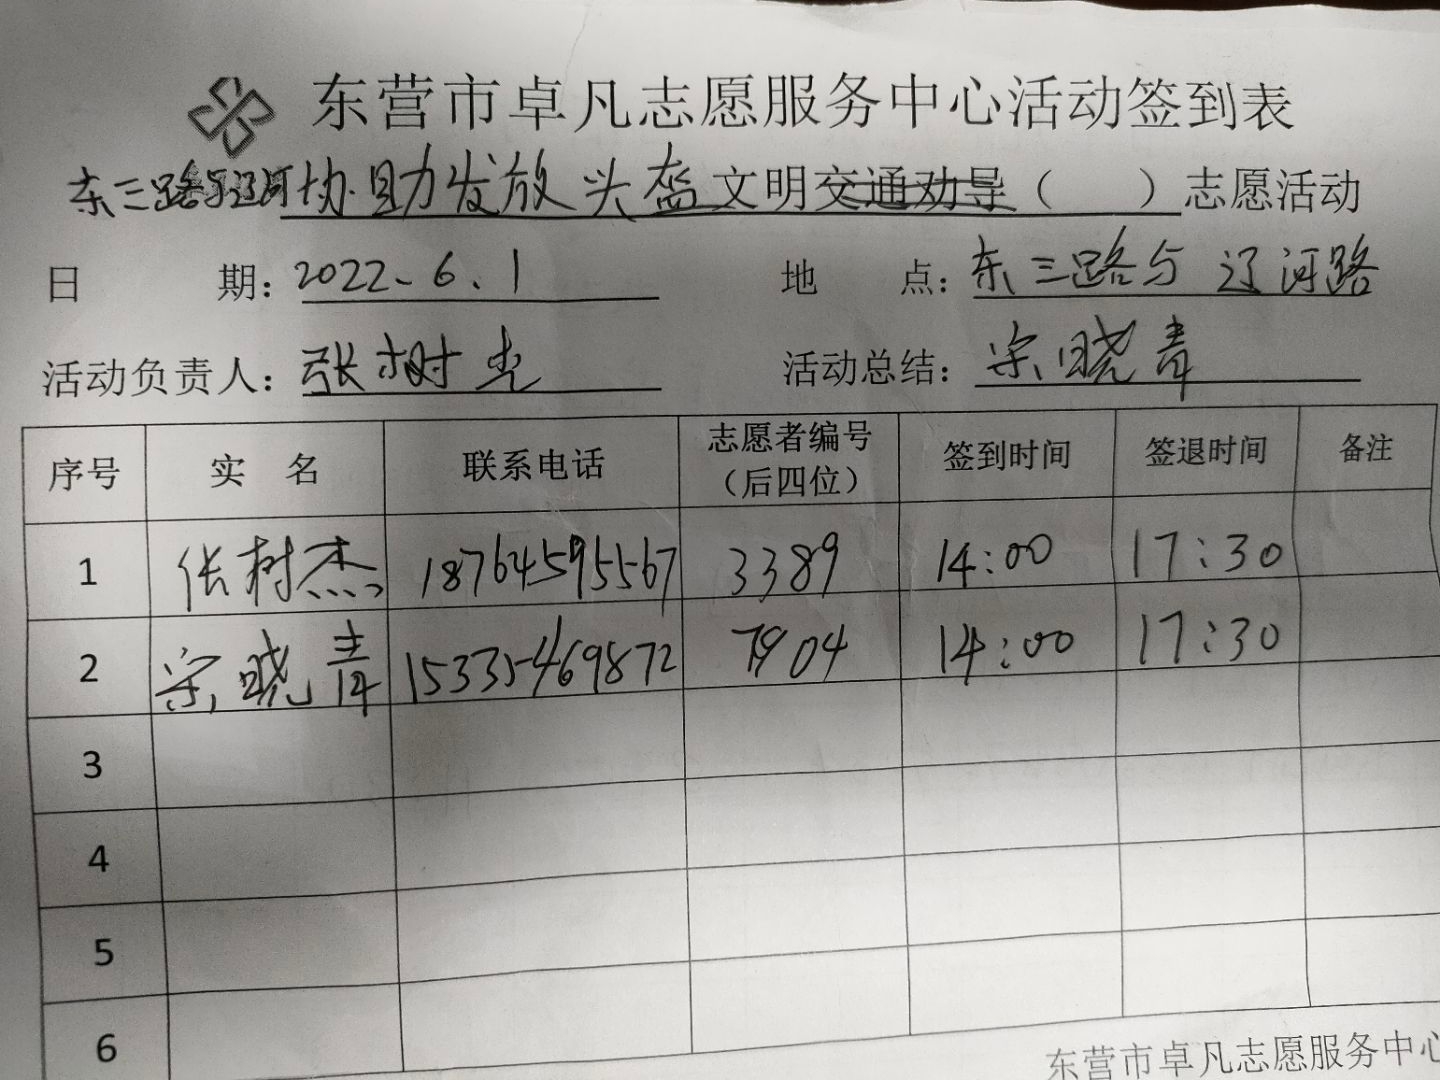 东营市卓凡志愿服务中心活动签到表
东三路与辽河协助发放头盔文明交通劝导（ ）志愿活动
日 期：2022.6.1 地 点：东三路与辽河路
活动负责人：张树杰 活动总结：宗晓青
序号 实 名 联系电话 志愿者编号（后四位） 签到时间 签退时间 备注
1 张树杰 18764595567 3389 14:00 17:30
2 宗晓青 15335469872 7904 14:00 17:30
3
4
5
6
东营市卓凡志愿服务中心